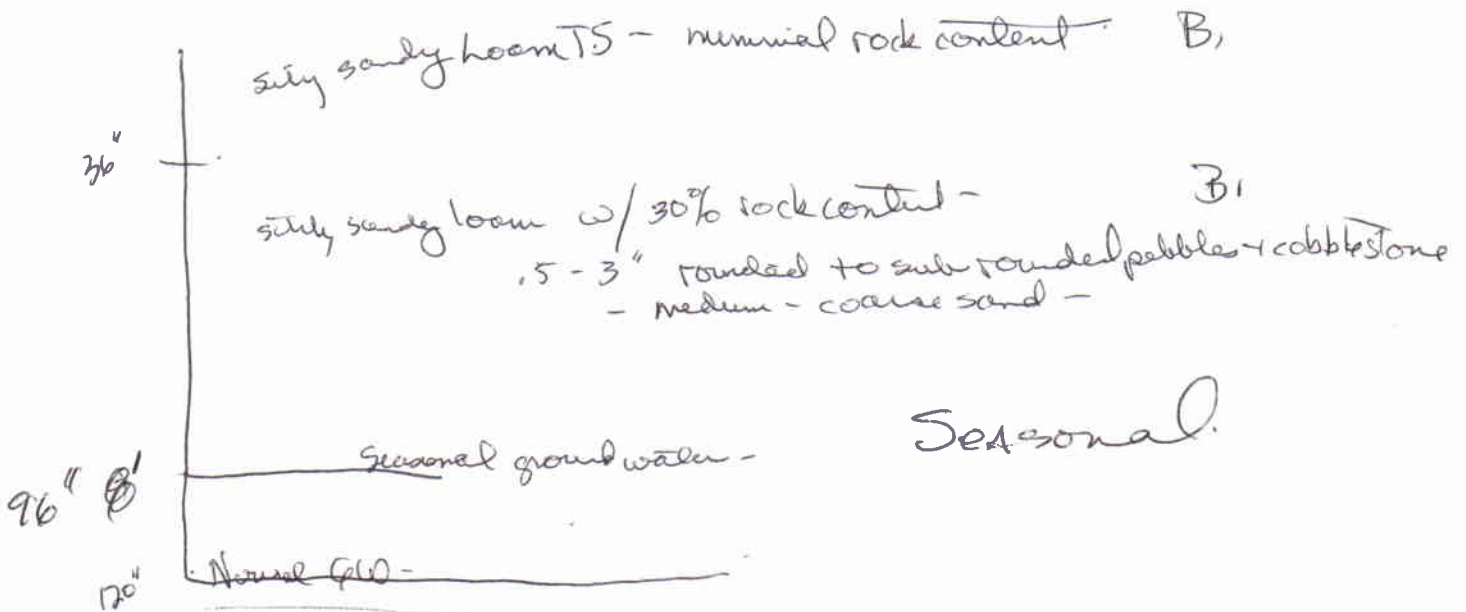 silty sandy Loam TS - minimial rock content B1
36"
silty sandy loam w/ 30% rock content - B1
.5 - 3" rounded to sub rounded pebbles + cobblestone
- medium - coarse sand -
Seasonal
Seasonal ground water -
96" 8'
Normal GW -
120"